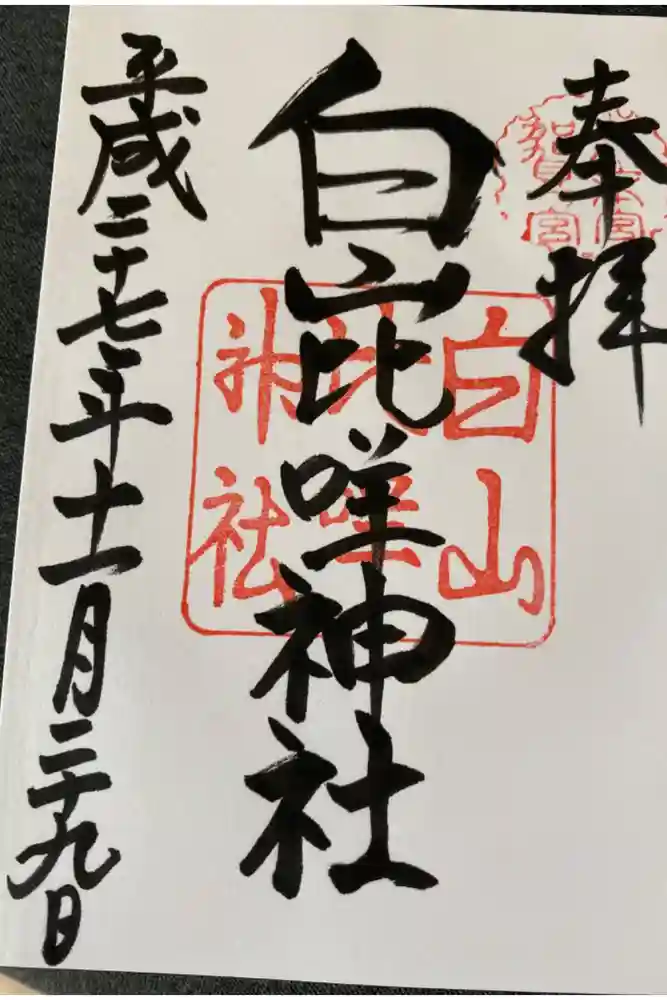 奉拝
白山比咩神社
平成二十七年十一月二十九日
白山
比咩
神社